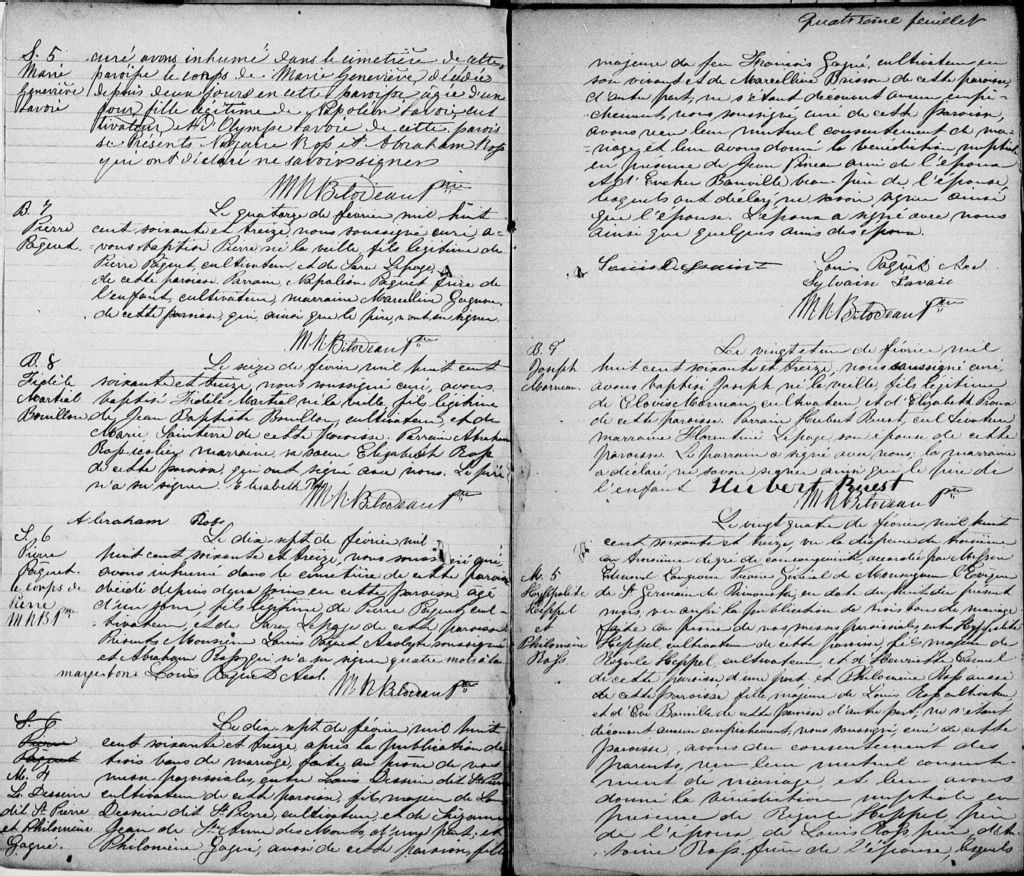 S. 5
Marie
Geneviève
Savoie
curé avons inhumé dans le cimetière de cette
paroisse le corps de Marie Geneviève décédée
depuis deux jours en cette paroisse agée d'un
jour, fille légitime de Napoléon Savoie, cul-
tivateur, et d'Olympe Savoie de cette parois-
se. Présents Ross et Abraham Ross
qui ont déclaré ne savoir signer
M N Bilodeau Ptre
B. 7
Pierre
Paquet
Le quatorze de février mil huit
cent soixante et treize, nous soussigné curé, a-
vons baptisé Pierre né la veille, fils légitime de
Pierre Paquet, cultivateur, et de Sara Lepage,
de cette paroisse. Parrain, Napoléon Paquet frère de
l'enfant, cultivateur, marraine Marceline Gagnon,
de cette paroisse, qui, ainsi que le père, n'ont su signer.
M N Bilodeau Ptre
B. 8
Fidèle
Martial
Bouillon
Le seize de février mil huit cent
soixante et treize, nous soussigné curé, avons
baptisé Fidèle Martial né la veille, fils légitime
de Jean Baptiste Bouillon, cultivateur, et de
Marie Sainterre de cette paroisse. Parrain Abraham
Ross marraine, sa soeur Elizabeth Ross
de cette paroisse, qui ont signé avec nous. Le père
n'a su signer. Elisabeth Ross
M N Bilodeau Ptre
Abraham Ross
S. 6
Pierre
Paquet
le corps de
Pierre
M N B Ptre
Le dix sept de février mil
huit cent soixante et treize, nous soussigné curé,
avons inhumé dans le cimetière de cette paroisse
décédé depuis deux jours en cette paroisse agé
d'un jour, fils légitime de Pierre Paquet, cul-
tivateur, et de Sara Lepage de cette paroisse
Présents Monsieur Louis Paquet Acolyte soussigné
et Abraham Ross qui n'a su signer quatre mots à la
marge bons Louis Paquet Acol.
M N Bilodeau Ptre
S. 6
Pierre
Paquet
M. 4
Ls Dessein
dit St Pierre
et Philomène
Gagné.
Le dix sept de février mil huit
cent soixante et treize, après la publication de
trois bans de mariage, faite au prône de nos
messes paroissiales, entre Louis Dessein dit St Pierre
cultivateur de cette paroisse, fils majeur de Louis
Dessein dit St Pierre, cultivateur, et de Suzanne
Jean de Ste Anne des Monts, d'une part, et
Philomène Gagné, aussi de cette paroisse, fille
Quatrième feuillet
majeure de feu François Gagné, cultivateur en
son vivant et de Marcelline Brisson de cette paroisse
d'autre part; ne s'étant découvert aucun empê-
chement, nous soussigné, curé de cette paroisse,
avons reçu leur mutuel consentement de ma-
riage et leur avons donné la bénédiction nuptiale
en présence de Jean Pineau ami de l'époux
et d' Banville beau père de l'épouse
lesquels ont déclaré ne savoir signer ainsi
que l'épouse. L'époux a signé avec nous
ainsi que quelques amis des époux.
Louis Dessaint Louis Paquet Acol
Sylvain Lavoie
M N Bilodeau Ptre
B. 9
Joseph
Morneau
Le vingt et un de février mil
huit cent soixante et treize, nous soussigné curé,
avons baptisé Joseph né la veille, fils légitime
de Elois Morneau, cultivateur et d'Elizabeth Proux
de cette paroisse. Parrain Hubert Ruest, cultivateur
marraine Florentine Lepage, son épouse de cette
paroisse. Le parrain a signé avec nous; la marraine
a déclaré ne savoir signer ainsi que le père de
l'enfant Hubert Ruest
M N Bilodeau Ptre
M. 5
Hyppolite
Heppel
et
Philomène
Ross
Le vingt quatre de février, mil huit
cent soixante et treize, vu la dispense du troisième
au troisième degré de consanguinité accordée par Messire
Edmond Langevin Vicaire Général de Monseigneur l'Evêque
de St Germain de Rimouski, en date du huit du présent
mois, vu aussi la publication de trois bans de mariage
faite au prône de nos messes paroissiales, entre Hyppolite
Heppel, cultivateur de cette paroisse, fils majeur de
Régule Heppel, cultivateur, et d'Henriette
de cette paroisse d'une part et Philomène Ross aussi
de cette paroisse fille majeure de Louis Ross cultivateur
et d'Eve Banville de cette paroisse d'autre part; ne s'étant
découvert aucun empêchement, nous soussigné, curé de cette
paroisse, avons du consentement des
parents, reçu leur mutuel consente-
ment de mariage et leur avons
donné la bénédiction nuptiale en
présence de Régule Heppel père
de l'époux, de Louis Ross père, d'An-
toine Ross, frère de l'épouse, lesquels